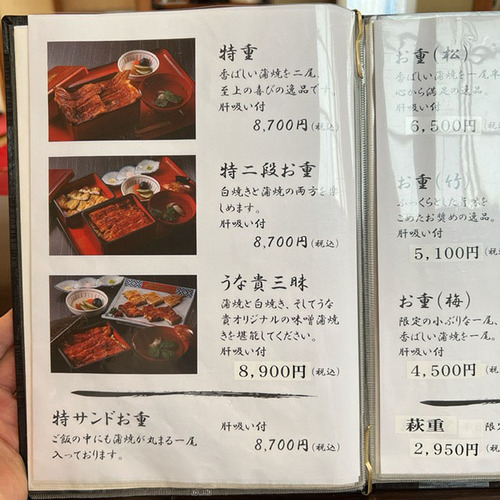 特重
香ばしい蒲焼を二尾、
至上の喜びの逸品です。
肝吸い付
8,700円(税込)
特二段お重
白焼きと蒲焼の両方を楽
しめます。
肝吸い付
8,700円(税込)
うな貴三昧
蒲焼と白焼き、そしてうな
貴オリジナルの味噌蒲焼
きを堪能してください。
肝吸い付
8,900円(税込)
特サンドお重
ご飯の中にも蒲焼が丸まる一尾
入っております。
肝吸い付
8,700円(税込)
お重(松)
香ばしい蒲焼を一尾半
心から満足の逸品。
肝吸い付
6,500円(税込)
お重(竹)
ふっくらとした
こめたお奨めの逸品。
肝吸い付
5,100円(税込)
お重(梅)
限定の小ぶりな一尾、
香ばしい蒲焼を一尾。
肝吸い付
4,500円(税込)
萩重
限定
2,950円(税込)